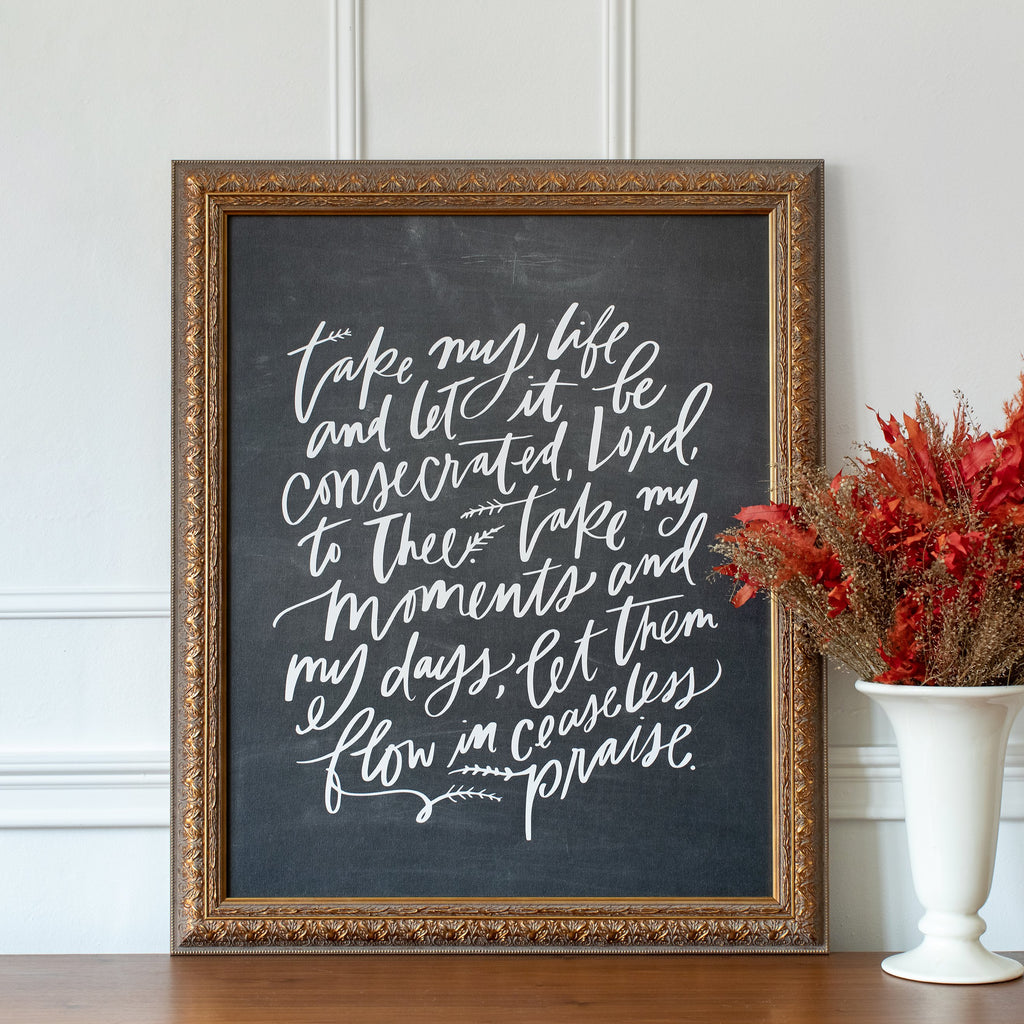 take my life
and let it be
consecrated, Lord,
to Thee. take my
moments and
my days, let them
flow in ceaseless
praise.